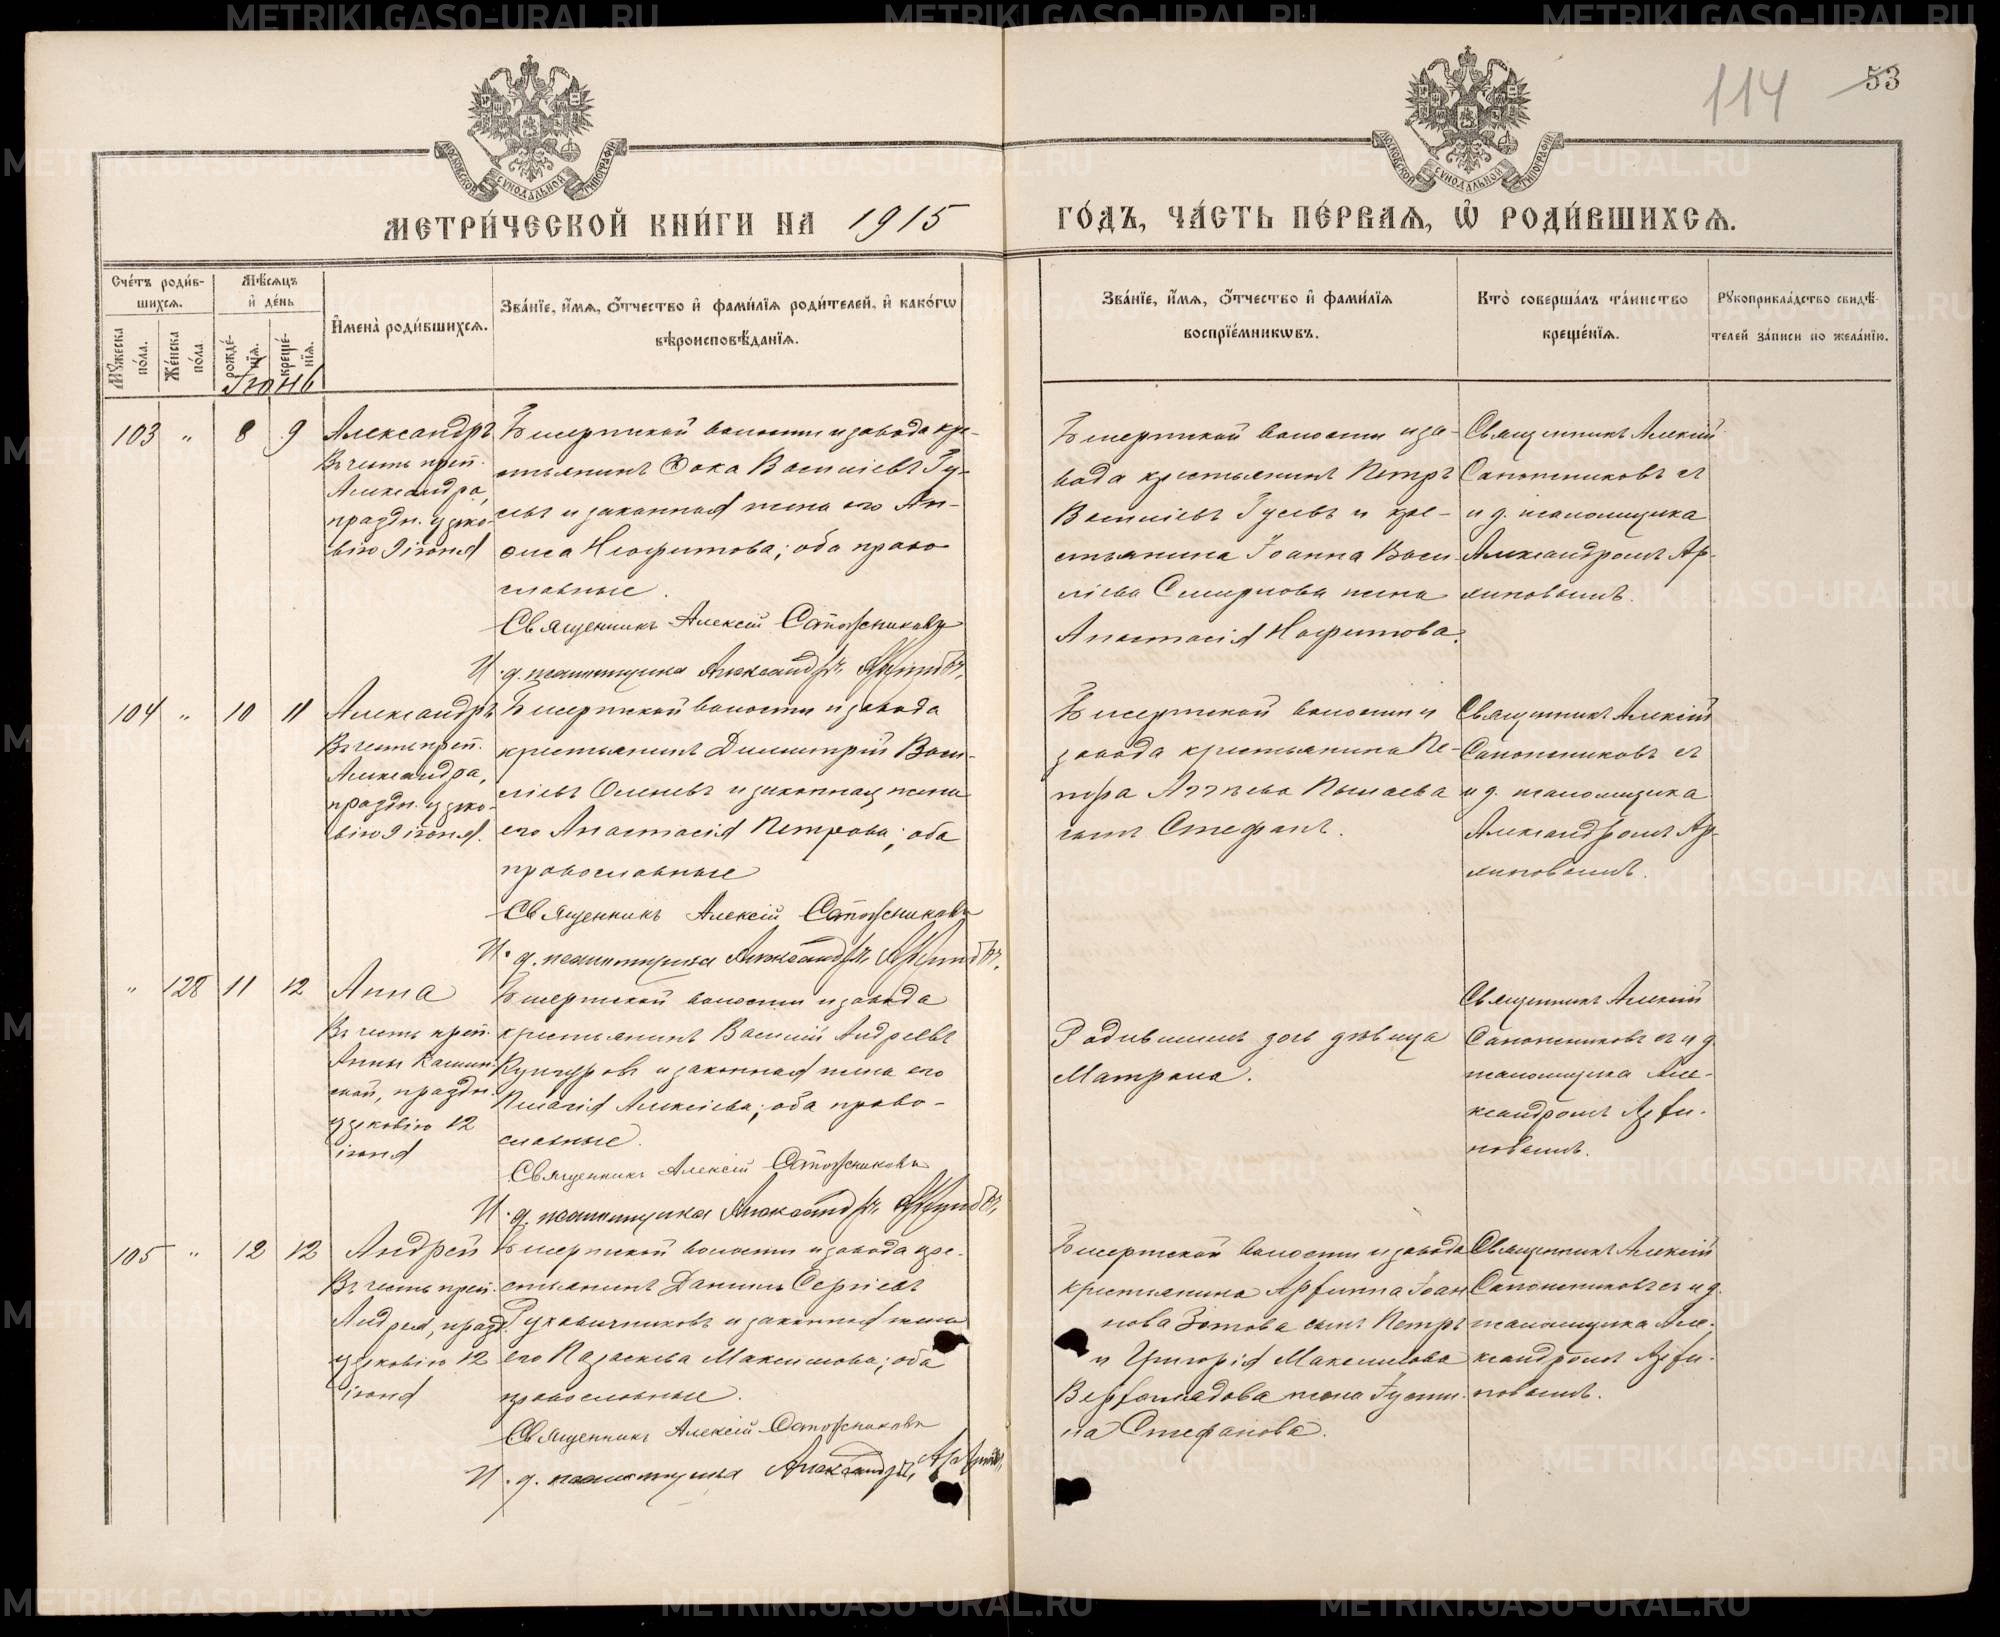 114 53
МОСКОВСКОЙ СѴНОДАЛЬНОЙ ТИПОГРАФІИ
МОСКОВСКОЙ СѴНОДАЛЬНОЙ ТИПОГРАФІИ
МЕТРИ́ЧЕСКОЙ КНИ́ГИ НА 1915 ГО́ДЪ, ЧА́СТЬ ПЕ́РВАѦ, Ѽ РОДИ́ВШИХСѦ.
Сче́тъ роди́в-
шихсѧ.
Мꙋ́жеска по́ла.
Же́нска по́ла.
Мѣ́сѧцъ
и҆ де́нь
рожде́-
нїѧ.
креще́-
нїѧ.
Іюнь
И҆мена̀ роди́вшихсѧ.
Зва́нїе, и҆́мѧ, ѻ҆́тчество и҆ фами́лїѧ роди́телей, и҆ како́гѡ
вѣроисповѣ́данїѧ.
Зва́нїе, и҆́мѧ, ѻ҆́тчество и҆ фами́лїѧ
воспрїе́мникѡвъ.
Кто̀ соверша́лъ та́инство
креще́нїѧ.
Рꙋкоприкла́дство свидѣ́-
телей за́писи по жела́нїю.
103 " 8 9
Александръ
Въ честь преп.
Александра,
праздн. церко-
вію 9 іюня
Бисертской волости и завода кре-
стьянинъ Фока Василіевъ Гу-
севъ и законная жена его Ан-
фиса Неофитова; оба право
славные.
Священникъ Алексій Сапожниковъ
И. д. псаломщика Александръ
Бисертской волости и за-
вода крестьянинъ Петръ
Василіевъ Гусевъ и кре-
стьянина Іоанна Васи-
ліева Смирнова жена
Анастасія Неофитова.
Священникъ Алексій
Сапожниковъ съ
и д. псаломщика
Александромъ Ар-
линовымъ.
104 " 10 11
Александръ
Въ честь преп.
Александра,
праздн. церко-
вію 9 іюня.
Бисертской волости и завода
крестьянинъ Димитрій Васи-
ліевъ Оленевъ и законная жена
его Анастасія Петрова; оба
православные
Священникъ Алексій Сапожниковъ
И. д. псаломщика Александръ
Бисертской волости и
завода крестьянина Пе-
тра
сынъ Стефанъ.
Священникъ Алексій
Сапожниковъ съ
и д. псаломщика
Александромъ Ар-
линовымъ.
" 128 11 12
Анна
Въ честь преп.
Анны Кашин-
ской, праздн.
церковію 12
іюня
Бисертской волости и завода
крестьянинъ Василій Андреевъ
Кунгуровъ и законная жена его
Пелагія Алексіева; оба право-
славные.
Священникъ Алексій Сапожниковъ
И. д. псаломщика Александръ
Родившимъ дочь дѣвица
Матрона.
Священникъ Алексій
Сапожниковъ съ и д.
псаломщика Але-
ксандромъ
105 " 12 12
Андрей
Въ честь преп.
Андрея, празд.
церковію 12
іюня
Бисертской волости и завода кре-
стьянинъ Даніилъ Сергіевъ
Рукавичниковъ и законная жена
его Параскева Максимова; оба
православные.
Священникъ Алексій Сапожниковъ
И. д. псаломщика Александръ
Бисертской волости и завода
крестьянина Іоан
нова Зотова сынъ Петръ
и Григорія Максимова
жена Густи-
на Стефанова.
Священникъ Алексій
Сапожниковъ съ и д.
псаломщика Але-
ксандромъ
METRIKI.GASO-URAL.RU